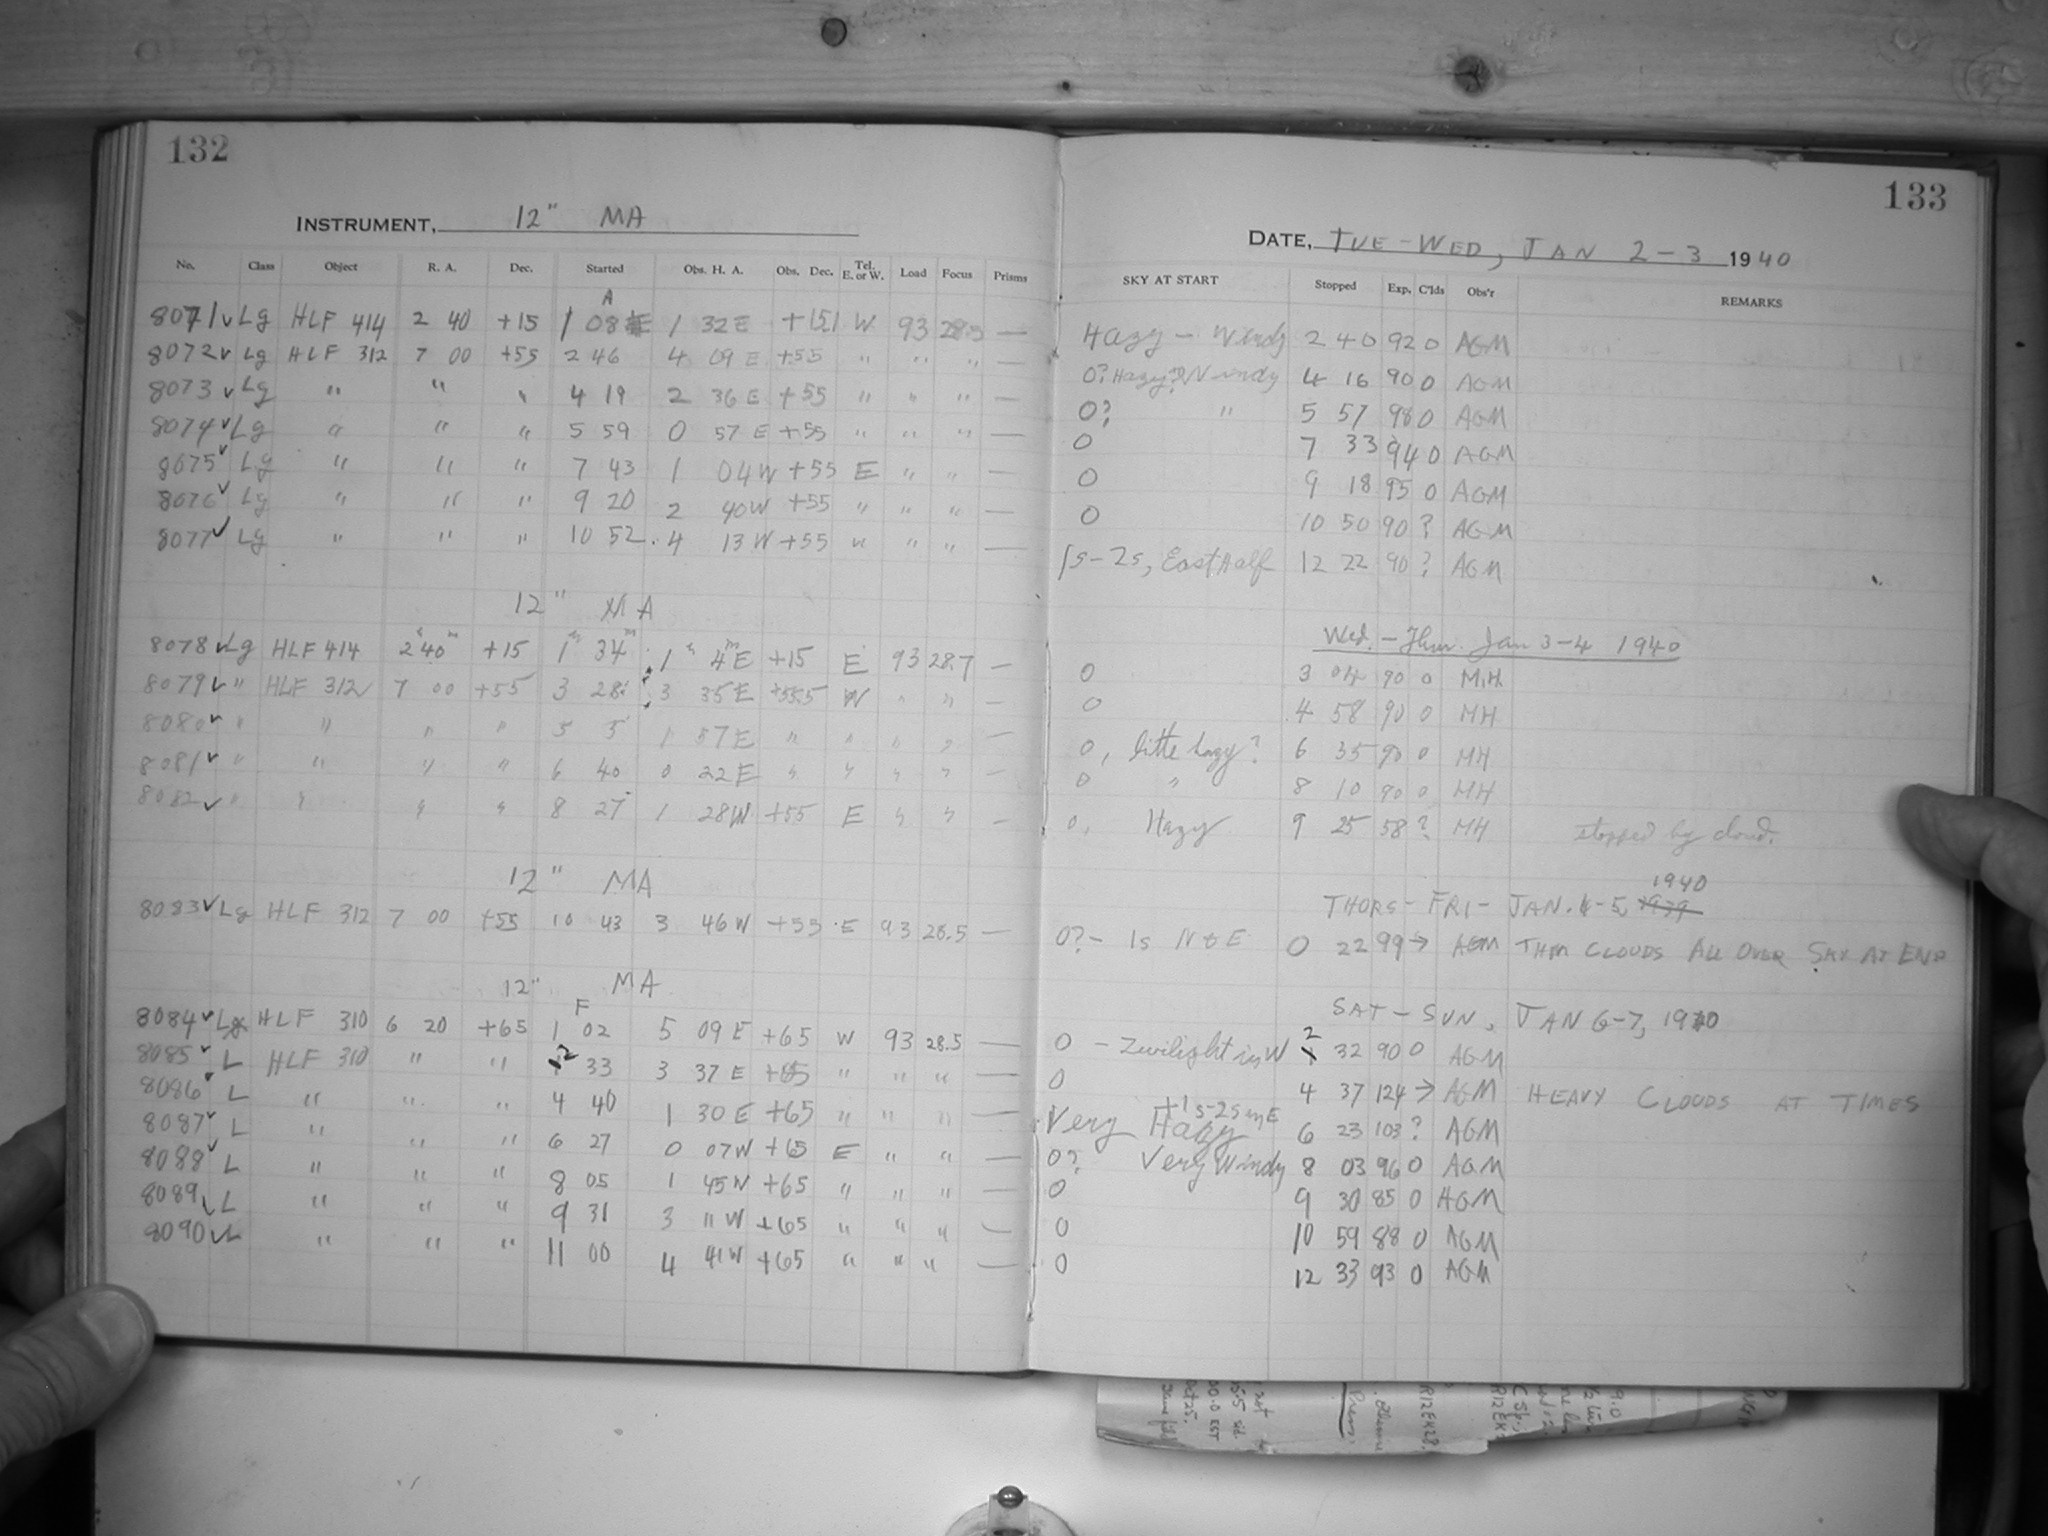 132
INSTRUMENT, 12" MA
No. Class Object R. A. Dec. Started Obs. H. A. Obs. Dec. Tel. E. or W. Load Focus Prisms
A
8071 ✓ Lg HLF 414 2 40 +15 1 08 1 32 E +15.1 W 93 28.5 —
8072 ✓ Lg HLF 312 7 00 +55 2 46 4 09 E +55 " " " —
8073 ✓ Lg " " " 4 19 2 36 E +55 " " " —
8074 ✓ Lg " " " 5 59 0 57 E +55 " " " —
8075 ✓ Lg " " " 7 43 1 04 W +55 E " " —
8076 ✓ Lg " " " 9 20 2 40 W +55 " " " —
8077 ✓ Lg " " " 10 52 4 13 W +55 " " " —
12" MA
8078 ✓ Lg HLF 414 2h 40m +15 1h 34m 1h 4m E +15 E 93 28.7 —
8079 ✓ " HLF 312 7 00 +55 3 28 3 35 E +55.5 W " " —
8080 ✓ " " " " 5 5 1 57 E " " " " —
8081 ✓ " " " " 6 40 0 22 E " " " " —
8082 ✓ " " " " 8 27 1 28 W +55 E " " —
12" MA
8083 ✓ Lg HLF 312 7 00 +55 10 43 3 46 W +55 E 93 28.5 —
12" MA
F
8084 ✓ Lg HLF 310 6 20 +65 1 02 5 09 E +65 W 93 28.5 —
8085 ✓ L HLF 310 " " 2 33 3 37 E +65 " " " —
8086 ✓ L " " " 4 40 1 30 E +65 " " " —
8087 ✓ L " " " 6 27 0 07 W +65 E " " —
8088 ✓ L " " " 8 05 1 45 W +65 " " " —
8089 ✓ L " " " 9 31 3 11 W +65 " " " —
8090 ✓ L " " " 11 00 4 41 W +65 " " " —
133
DATE, TUE - WED, JAN 2 - 3 1940
SKY AT START Stopped Exp. C'lds Obs'r REMARKS
Hazy - Windy 2 40 92 0 AGM
0? Hazy? Windy 4 16 90 0 AGM
0? " 5 57 98 0 AGM
0 7 33 94 0 AGM
0 9 18 95 0 AGM
0 10 50 90 ? AGM
1s-2s, East Half 12 22 90 ? AGM
Wed. - Thur. Jan 3-4 1940
0 3 04 90 0 M.H.
0 4 58 90 0 MH
0, little hazy? 6 35 90 0 MH
0 " 8 10 90 0 MH
0, Hazy 9 25 58 ? MH stopped by cloud.
1940
THURS - FRI - JAN. 4-5, 1939
0? - 1s N & E 0 22 99 → AGM THIN CLOUDS ALL OVER SKY AT END
SAT - SUN, JAN 6-7, 1940
0 - Twilight in W 2 32 90 0 AGM
0 4 37 124 → AGM HEAVY CLOUDS AT TIMES
Very Hazy +1s-2s in E 6 23 103 ? AGM
0? Very Windy 8 03 96 0 AGM
0 9 30 85 0 AGM
0 10 59 88 0 AGM
0 12 33 93 0 AGM